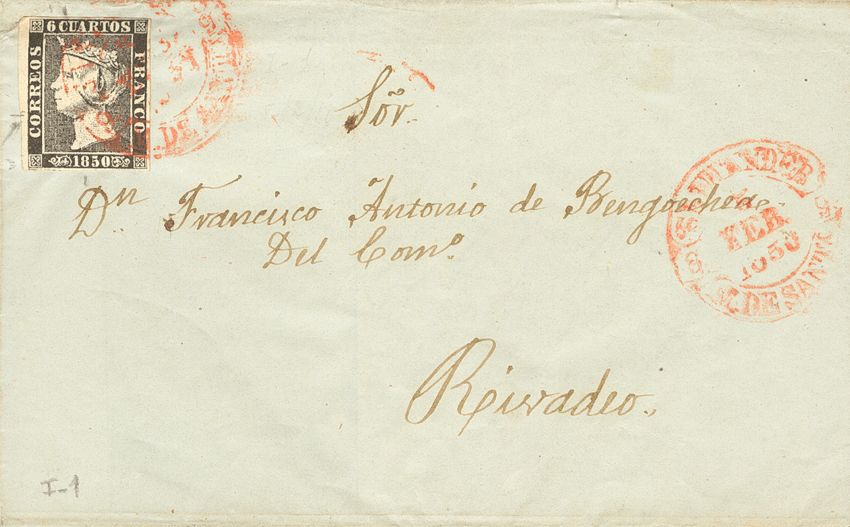 6 CUARTOS
CORREOS
FRANCO
1850
Sõr.
Dn Francisco Antonio de Bengoechea
Del Como.
Rivadeo.
SANTANDER
FEB
1850
M. DE SANTA
I-1